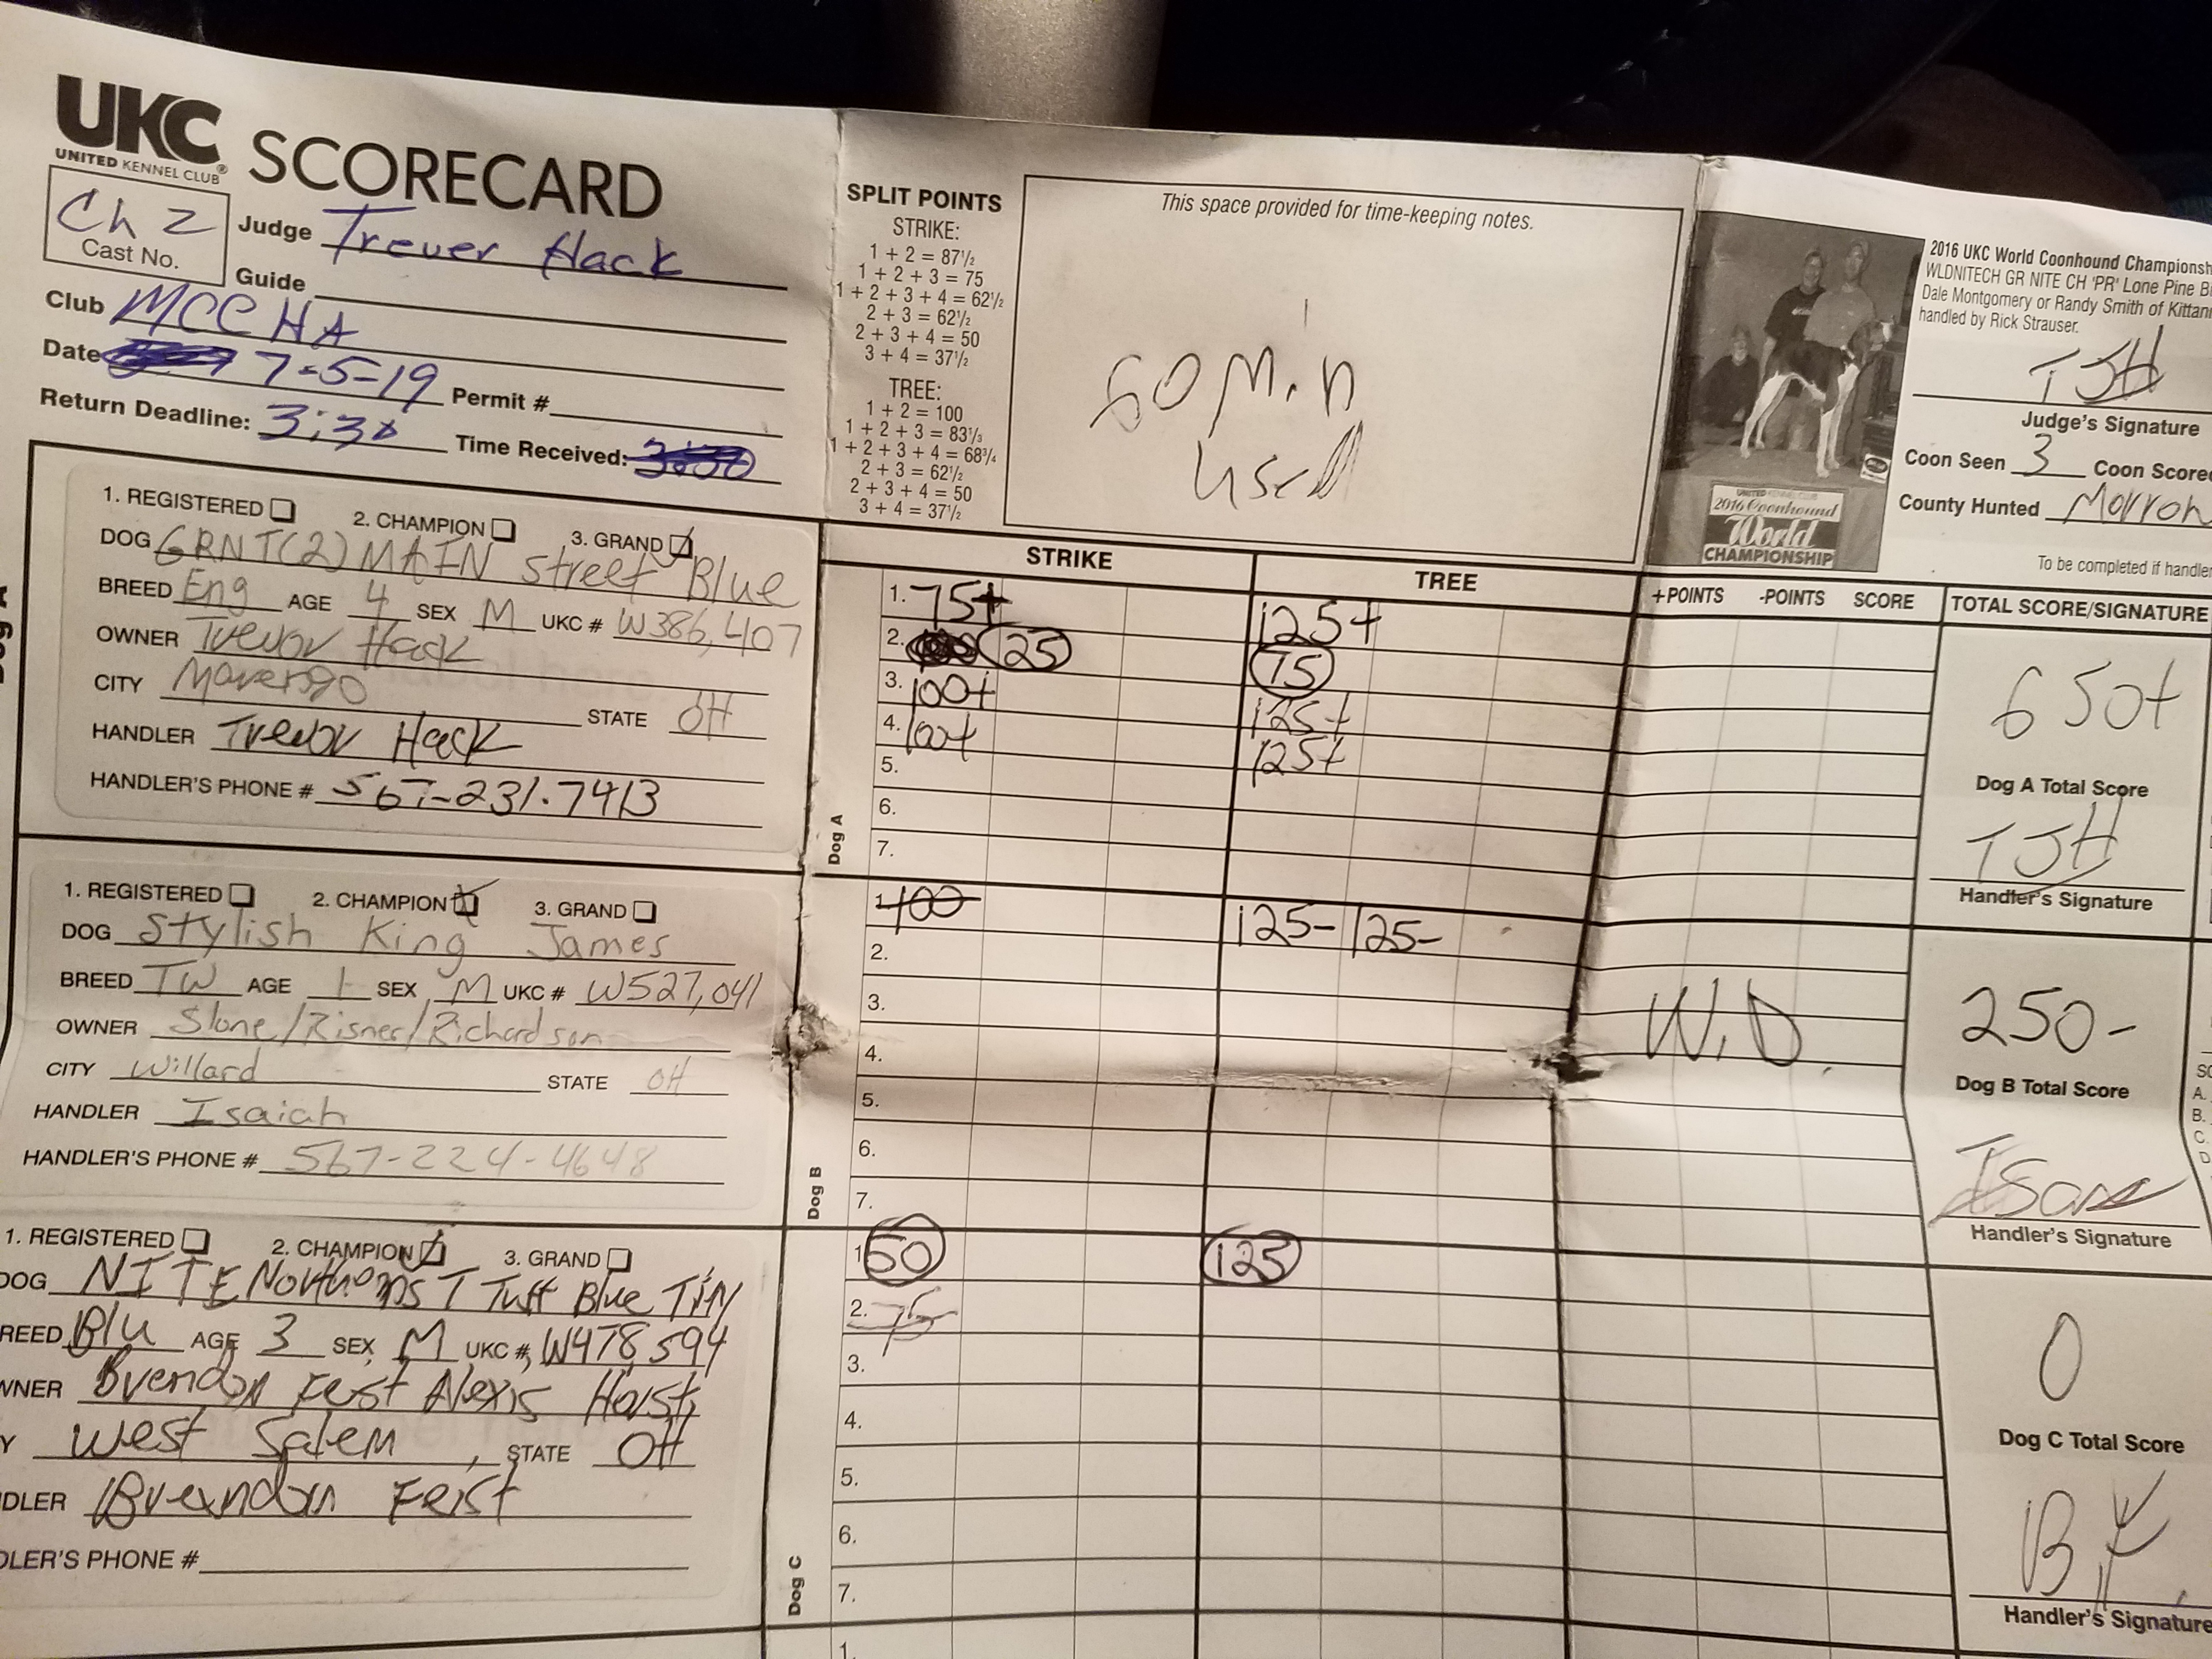 UKC SCORECARD
UNITED KENNEL CLUB®
Ch 2
Cast No.
Judge Trever Hack
Guide
Club MCCHA
Date 7-5-19 Permit #
Return Deadline: 3:30 Time Received:
SPLIT POINTS
STRIKE:
1 + 2 = 87½
1 + 2 + 3 = 75
1 + 2 + 3 + 4 = 62½
2 + 3 = 62½
2 + 3 + 4 = 50
3 + 4 = 37½
TREE:
1 + 2 = 100
1 + 2 + 3 = 83⅓
1 + 2 + 3 + 4 = 68¾
2 + 3 = 62½
2 + 3 + 4 = 50
3 + 4 = 37½
This space provided for time-keeping notes.
60 Min
used
2016 UKC World Coonhound Championsh
WLDNITECH GR NITE CH 'PR' Lone Pine B
Dale Montgomery or Randy Smith of Kittann
handled by Rick Strauser.
UNITED KENNEL CLUB
2016 Coonhound
World
CHAMPIONSHIP
TJH
Judge's Signature
Coon Seen 3 Coon Score
County Hunted Morrow
To be completed if handler
1. REGISTERED 2. CHAMPION 3. GRAND
DOG GRNT(2) MAIN Street Blue
BREED Eng AGE 4 SEX M UKC # W386,407
OWNER Trevor Hack
CITY Marengo STATE OH
HANDLER Trevor Hack
HANDLER'S PHONE # 567-231-7413
STRIKE TREE +POINTS -POINTS SCORE TOTAL SCORE/SIGNATURE
Dog A
1. 75+ 125+
2. 25 75
3. 100+ 125+
4. 100+ 125+
5.
6.
7.
650+
Dog A Total Score
TJH
Handler's Signature
1. REGISTERED 2. CHAMPION 3. GRAND
DOG Stylish King James
BREED TW AGE 1 SEX M UKC # W527,041
OWNER Slone/Risner/Richardson
CITY Willard STATE OH
HANDLER Isaiah
HANDLER'S PHONE # 567-224-4648
Dog B
1. 100 125- 125-
2.
3.
4.
5.
6.
7.
W.D.
250-
Dog B Total Score
Handler's Signature
1. REGISTERED 2. CHAMPION 3. GRAND
DOG NITE Northerns T Tuff Blue TiN
REED Blu AGE 3 SEX M UKC # W478,594
WNER Brendon Feist Alexis Horst
Y West Salem, STATE OH
DLER Brendon Feist
DLER'S PHONE #
Dog C
1. 50 125
2. 75
3.
4.
5.
6.
7.
0
Dog C Total Score
B F
Handler's Signature
1.